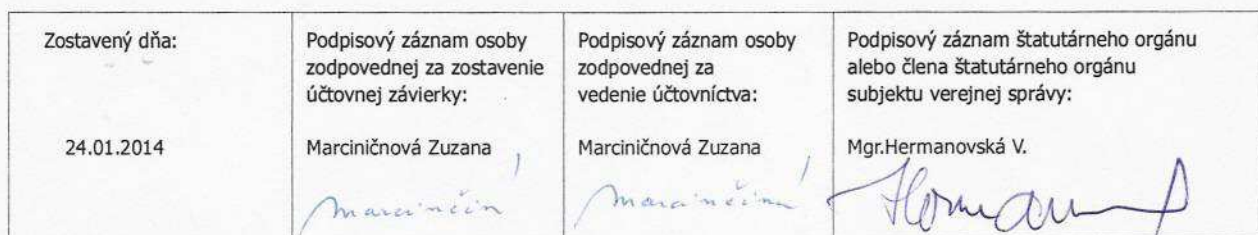 Zostavený dňa:
Podpisový záznam osoby
zodpovednej za zostavenie
účtovnej závierky:
Podpisový záznam osoby
zodpovednej za
vedenie účtovníctva:
Podpisový záznam štatutárneho orgánu
alebo člena štatutárneho orgánu
subjektu verejnej správy:
24.01.2014
Marciničnová Zuzana
Marciničnová Zuzana
Mgr.Hermanovská V.